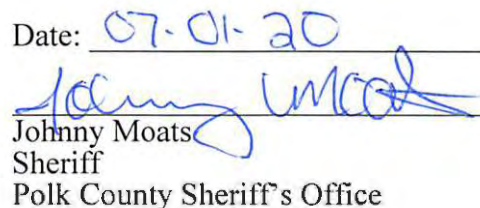 Date: 07-01-20
Johnny Moats
Sheriff
Polk County Sheriff's Office